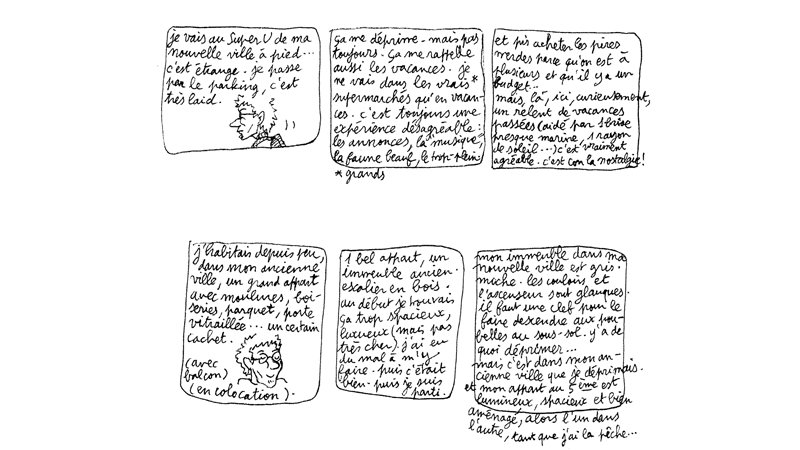 je vais au Super U de ma
nouvelle ville à pied...
c'est étrange. je passe
par le parking, c'est
très laid.
ça me déprime. mais pas
toujours. ça me rappelle
aussi les vacances. je
ne vais dans les vrais*
supermarchés qu'en vacan-
ces. c'est toujours une
expérience désagréable :
les annonces, la musique,
la faune beauf, le trop-plein.
* grands
et pis acheter les pires
merdes parce qu'on est à
plusieurs et qu'il y a un
budget...
mais, là, ici, curieusement,
un relent de vacances
passées (aidé par 1 brise
presque marine, 1 rayon
de soleil...) c'est vraiment
agréable. c'est con la nostalgie !
j'habitais depuis peu,
dans mon ancienne
ville, un grand appart
avec moulures, boi-
series, parquet, porte
vitraillée... un certain
cachet.
(avec
balcon)
(en colocation).
1 bel appart, un
immeuble ancien.
escalier en bois.
au début je trouvais
ça trop spacieux,
luxueux (mais pas
très cher). j'ai eu
du mal à m'y
faire. puis c'était
bien. puis je suis
parti.
mon immeuble dans ma
nouvelle ville est gris.
moche. les couloirs et
l'ascenseur sont glauques.
il faut une clef pour le
faire descendre aux pou-
belles au sous-sol. y'a de
quoi déprimer...
mais c'est dans mon an-
cienne ville que je déprimais.
et mon appart au 5ème est
lumineux, spacieux et bien
aménagé, alors l'un dans
l'autre, tant que j'ai la pêche...